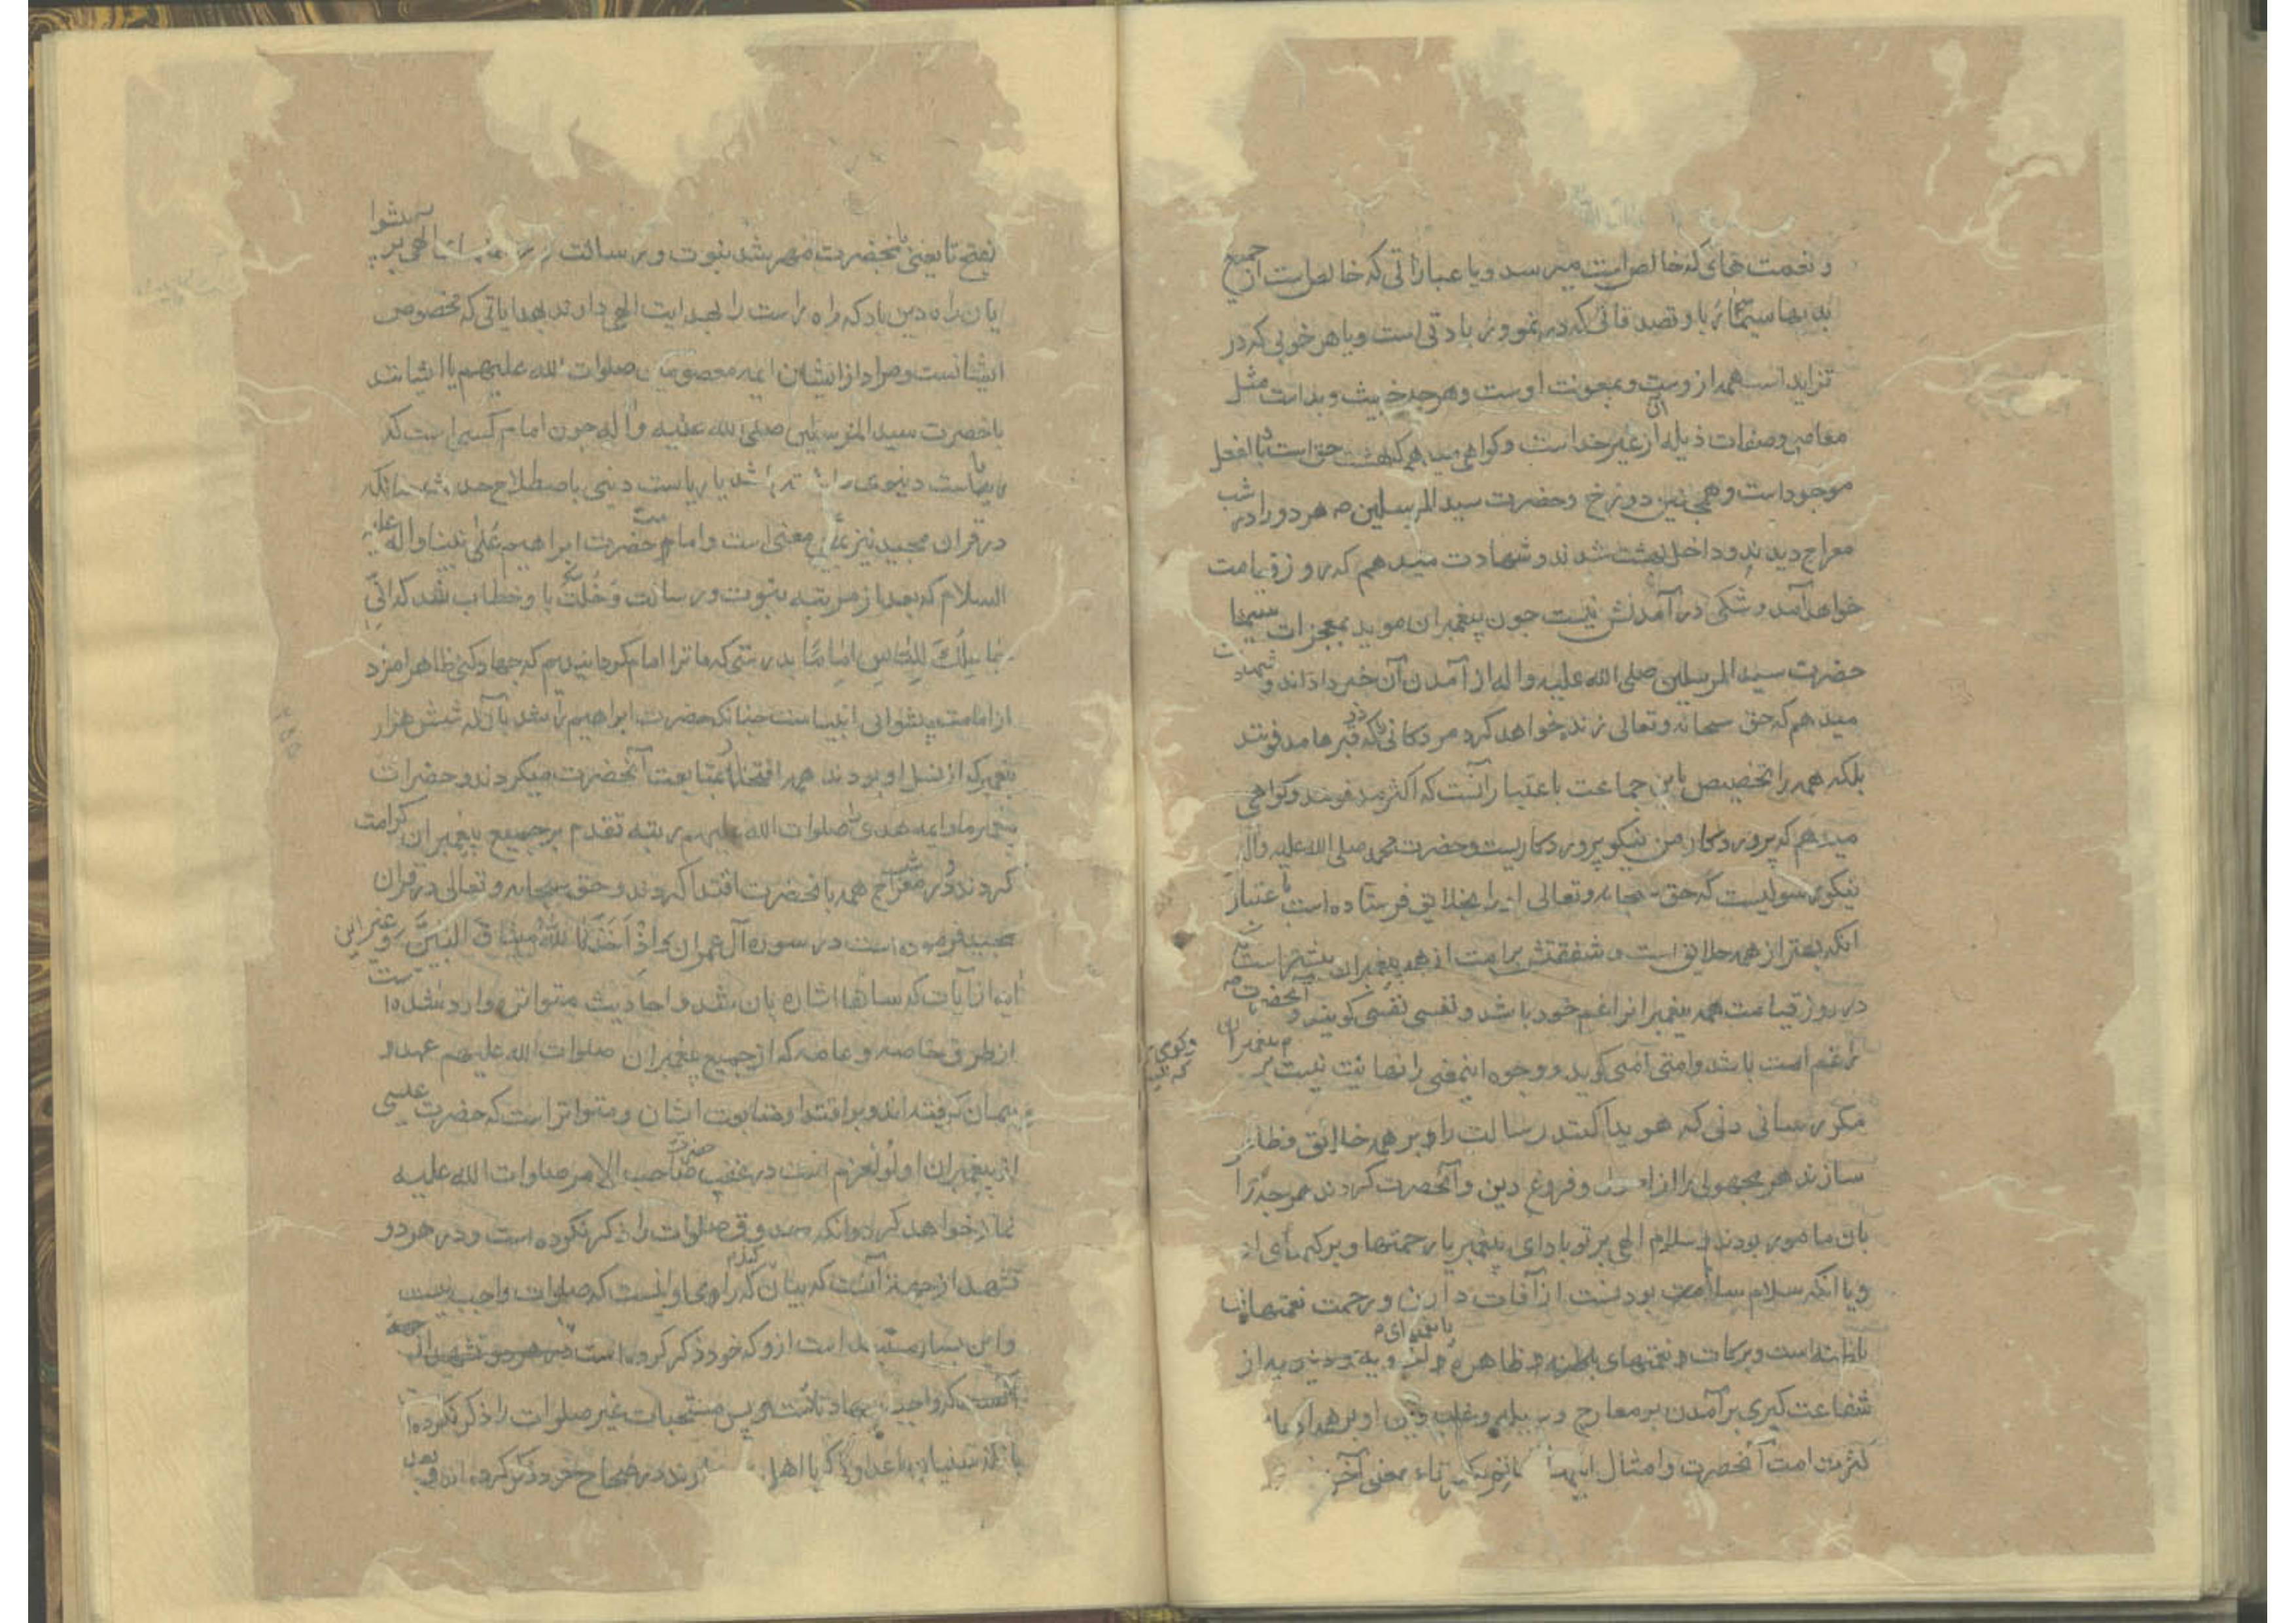 و نعمت های که خالص است میرسد و یا عباراتی که خالص است از جمیع
بدیها سیما ریا و تصدقاتی که در نمو و زیادتی است و یا هر خوبی که در
تزاید است همه از وست و بمعونت اوست و هرچه خبیث و بد است مثل
معاصی و صفات ذیله از غیر خداست و کواهی میدهم که بهشت حق است بالفعل
موجود است و همچنین دوزخ و حضرت سید المرسلین ص هر دو را در شب
معراج دیدند و داخل بهشت شدند و شهادت میدهم که روز قیامت
خواهد آمد و شکی در آمدنش نیست چون پیغمبران موید بمعجزات سیما
حضرت سید المرسلین صلی الله علیه و اله از آمدن آن خبر داده‌اند و شهادت
میدهم که حق سبحانه و تعالی زنده خواهد کرد مردکانی را که در قبرها مدفونند
بلکه همه را تخصیص باین جماعت باعتبار آنست که اکثر مدفونند و کواهی
میدهم که پروردکار من نیکو پروردکاریست و حضرت محمد صلی الله علیه و اله
نیکو رسولیست که حق سبحانه و تعالی او را بخلایق فرستاده است باعتبار
انکه بهتر از همه خلایق است و شفقتش بر امت از همه پیغمبران بیشتر است
در روز قیامت همه پیغمبرانرا غم خود باشد و نفسی نفسی کویند و آنحضرت ص
را غم امت باشد و امتی امتی کوید و وجوه اینمعنی را نهایت نیست بر پیغمبران
مکر رسانیدنی که هویدا کنند رسالت را و بر همه خلایق و ظاهر
سازند هر مجهولی را از اصول و فروع دین و آنحضرت کردند هرچه را
بان مامور بودند و سلام الهی بر تو باد ای پیغمبر با رحمتها و برکتهای او
و یا انکه سلام سلامت بودنست از آفات دارین و رحمت نعمتهای
است و برکات و نعمتهای باطنه و ظاهره و دنیویه از
شفاعت کبری بر آمدن بر معارج و غلبه دین او بر همه
کثرت امت آنحضرت و امثال اینها بمعنی آخر
بفتح تا یعنی بانحضرت مهر شد نبوت و رسالت الهی بر پیشوا
یان راه دین باد که راه راست را بهدایت الهی دارند بهدایاتی که مخصوص
ایشانست و مراد از ایشان ایمه معصومین صلوات الله علیهم یا ایشانند
با حضرت سید المرسلین صلی الله علیه و اله چون امام کسی است که
ریاست دنیوی داشته باشد یا ریاست دینی باصطلاح چنانکه
در قران مجید نیز باین معنی است و امامت حضرت ابراهیم علی نبینا و اله و علیه
السلام که بعد از مرتبه نبوت و رسالت و خلت باو خطاب شد که انی
جاعلک للناس اماما بدرستی که ما ترا امام کردانیدیم که جهاد کنی ظاهرا مراد
از امامت پیشوائی انبیاست چنانکه حضرت ابراهیم را شد بآنکه شش هزار
پیغمبر که از نسل او بودند همه افتخار بمتابعت آنحضرت میکردند و حضرات
پیغمبر ما و ایمه هدی صلوات الله علیهم رتبه تقدم بر جمیع پیغمبران کرامت
کردند و در شب معراج همه بانحضرت اقتدا کردند و حق سبحانه و تعالی در قران
مجید فرموده است در سوره آل عمران و اذ اخذ الله میثاق النبیین و غیر این
ایه از آیات که سابقا اشاره بان شد و احادیث متواتره وارد شده است
از طرق خاصه و عامه که از جمیع پیغمبران صلوات الله علیهم عهد و
پیمان کرفته‌اند و بر اقتدا و متابعت ایشان و متواتر است که حضرت عیسی
از پیغمبران اولوالعزم است در عقب حضرت صاحب الامر صلوات الله علیه
نماز خواهد کرد و انکه صدوق صلوات را ذکر نکرده است و در هر دو
تشهد از جهة آنست که بیان کردم که راوی او اینست که صلوات واجب نیست
و این بسیار مستبعد است ازو که خود ذکر کرده است
آنست که پس مستحبات غیر صلوات را ذکر نکرده
با انکه سنیان با عداوتی که با اهل دارند در صحاح خود ذکر کرده‌اند